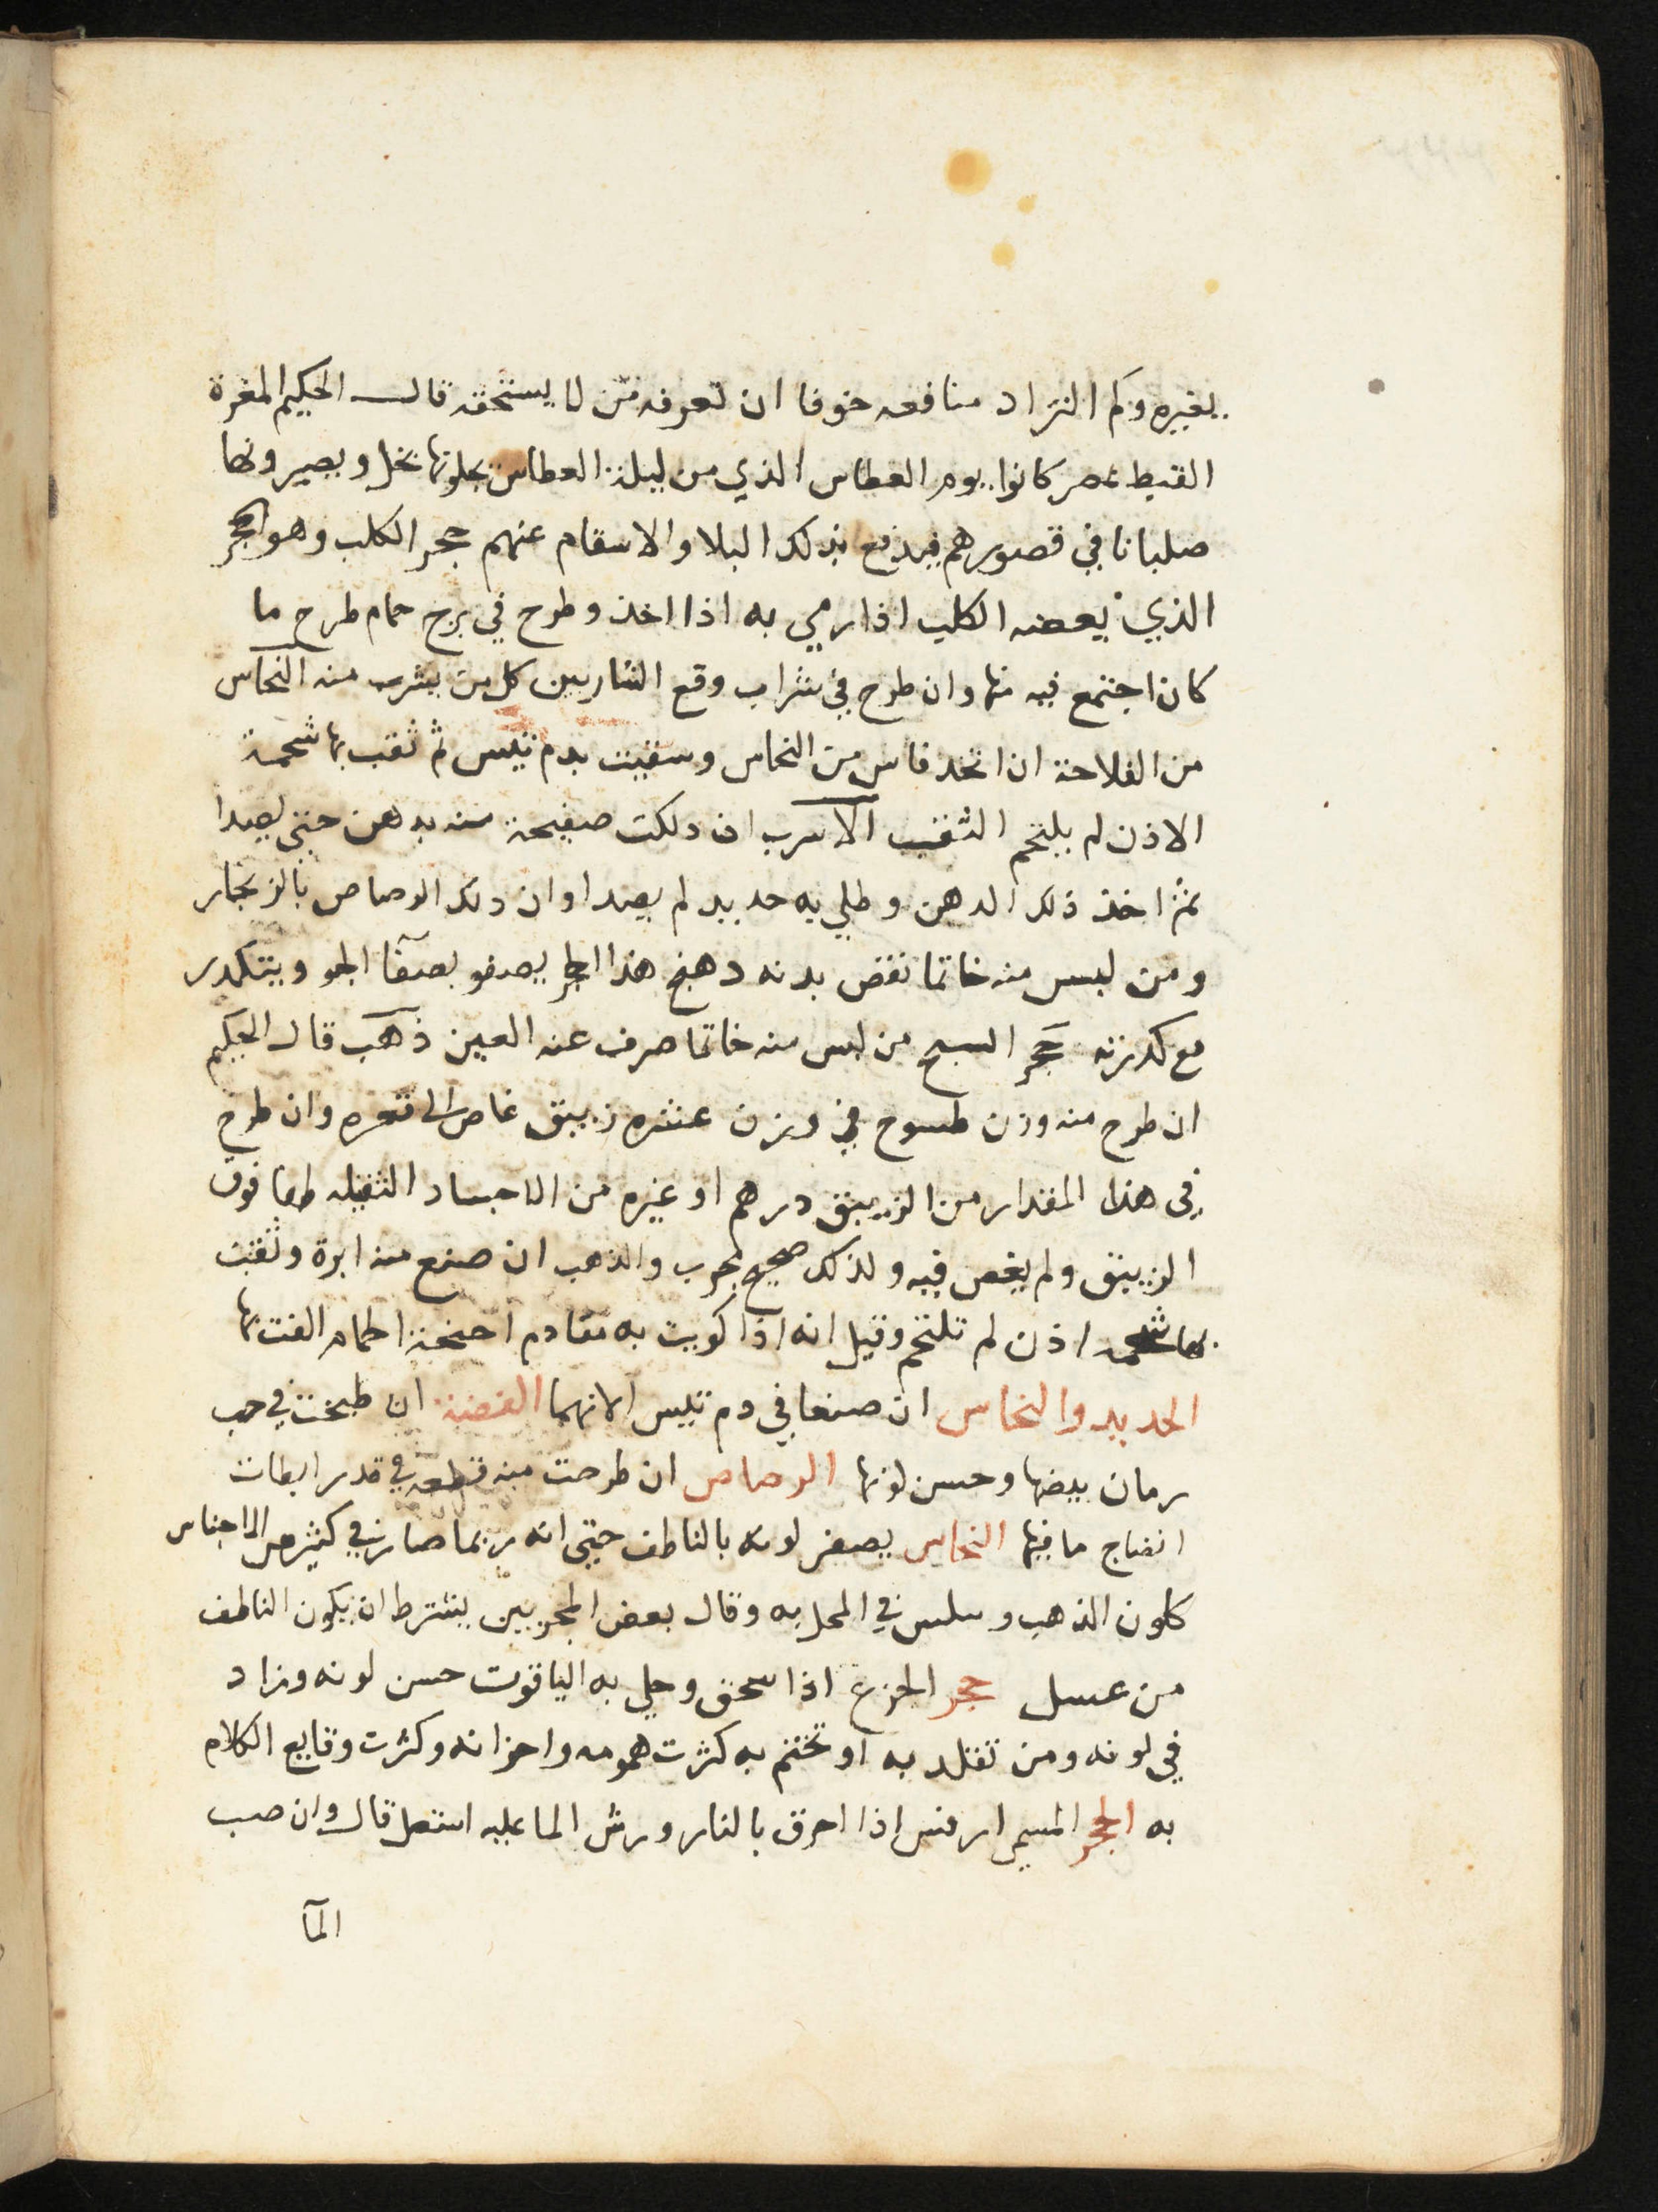 بغيره وكم النزاد منافعه خوفا ان تعرفه من لا يستحقه قال الحكيم المغرة
القبط بمصر كانوا يوم الغطاس الذي من ليلة الغطاس يحلونها بخل ويصيرونها
صلبانا في قصورهم فيدفع بذلك البلا والاسقام عنهم حجر الكلب وهو الحجر
الذي يعضه الكلب اذا رمي به اذا اخذ وطرح في برج حمام طرح ما
كان اجتمع فيه منها وان طرح في شراب وقع الشاربين كل من يشرب منه النحاس
من الفلاحة ان اتخذ فاس من النحاس وسقيت بدم تيس ثم ثقب بها شحمة
الاذن لم يلتحم الثقب الاسرب ان دلكت صفيحة منه بدهن حتى يصدا
ثم اخذ ذلك الدهن وطلي به حديد لم يصدا وان دلك الرصاص بالزنجار
ومن لبس منه خاتما نقض بدنه دهنج هذا الحجر يصفو بصفآ الجو ويتكدر
مع كدرته حجر السبج من لبس منه خاتما صرف عنه العين ذهب قال الحكيم
ان طرح منه وزن طسوج في وزن عشره زيبق غاص الى قعره وان طرح
في هذا المقدار من الزيبق درهم او غيره من الاجساد الثقيله طفا فوق
الزيبق ولم يغص فيه ولذلك صحيح مجرب والذهب ان صنع منه ابرة وثقبت
بها شحمه اذن لم تلتحم وقيل انه اذا كويت به مقادم اجنحة الحمام الفت بها
الحديد والنحاس ان صنعا في دم تيس الانهما الفضة ان طبخت في حب
رمان بيضها وحسن لونها الرصاص ان طرحت منه قطعه في قدر ابطات
انضاج ما فيها النحاس يصفر لونه بالناطف حتى انه ربما صار في كثير من الاجناس
كلون الذهب وسلس في المحل به وقال بعض المجربين يشترط ان يكون الناطف
من عسل حجر الجزع اذا سحق وجلي به الياقوت حسن لونه وزاد
في لونه ومن تقلد به او تختم به كثرت همومه واحزانه وكثرت وقايع الكلام
به الحجر المسمى ارفس اذا احرق بالنار ورش الما عليه اشتعل قال وان صب
المآ